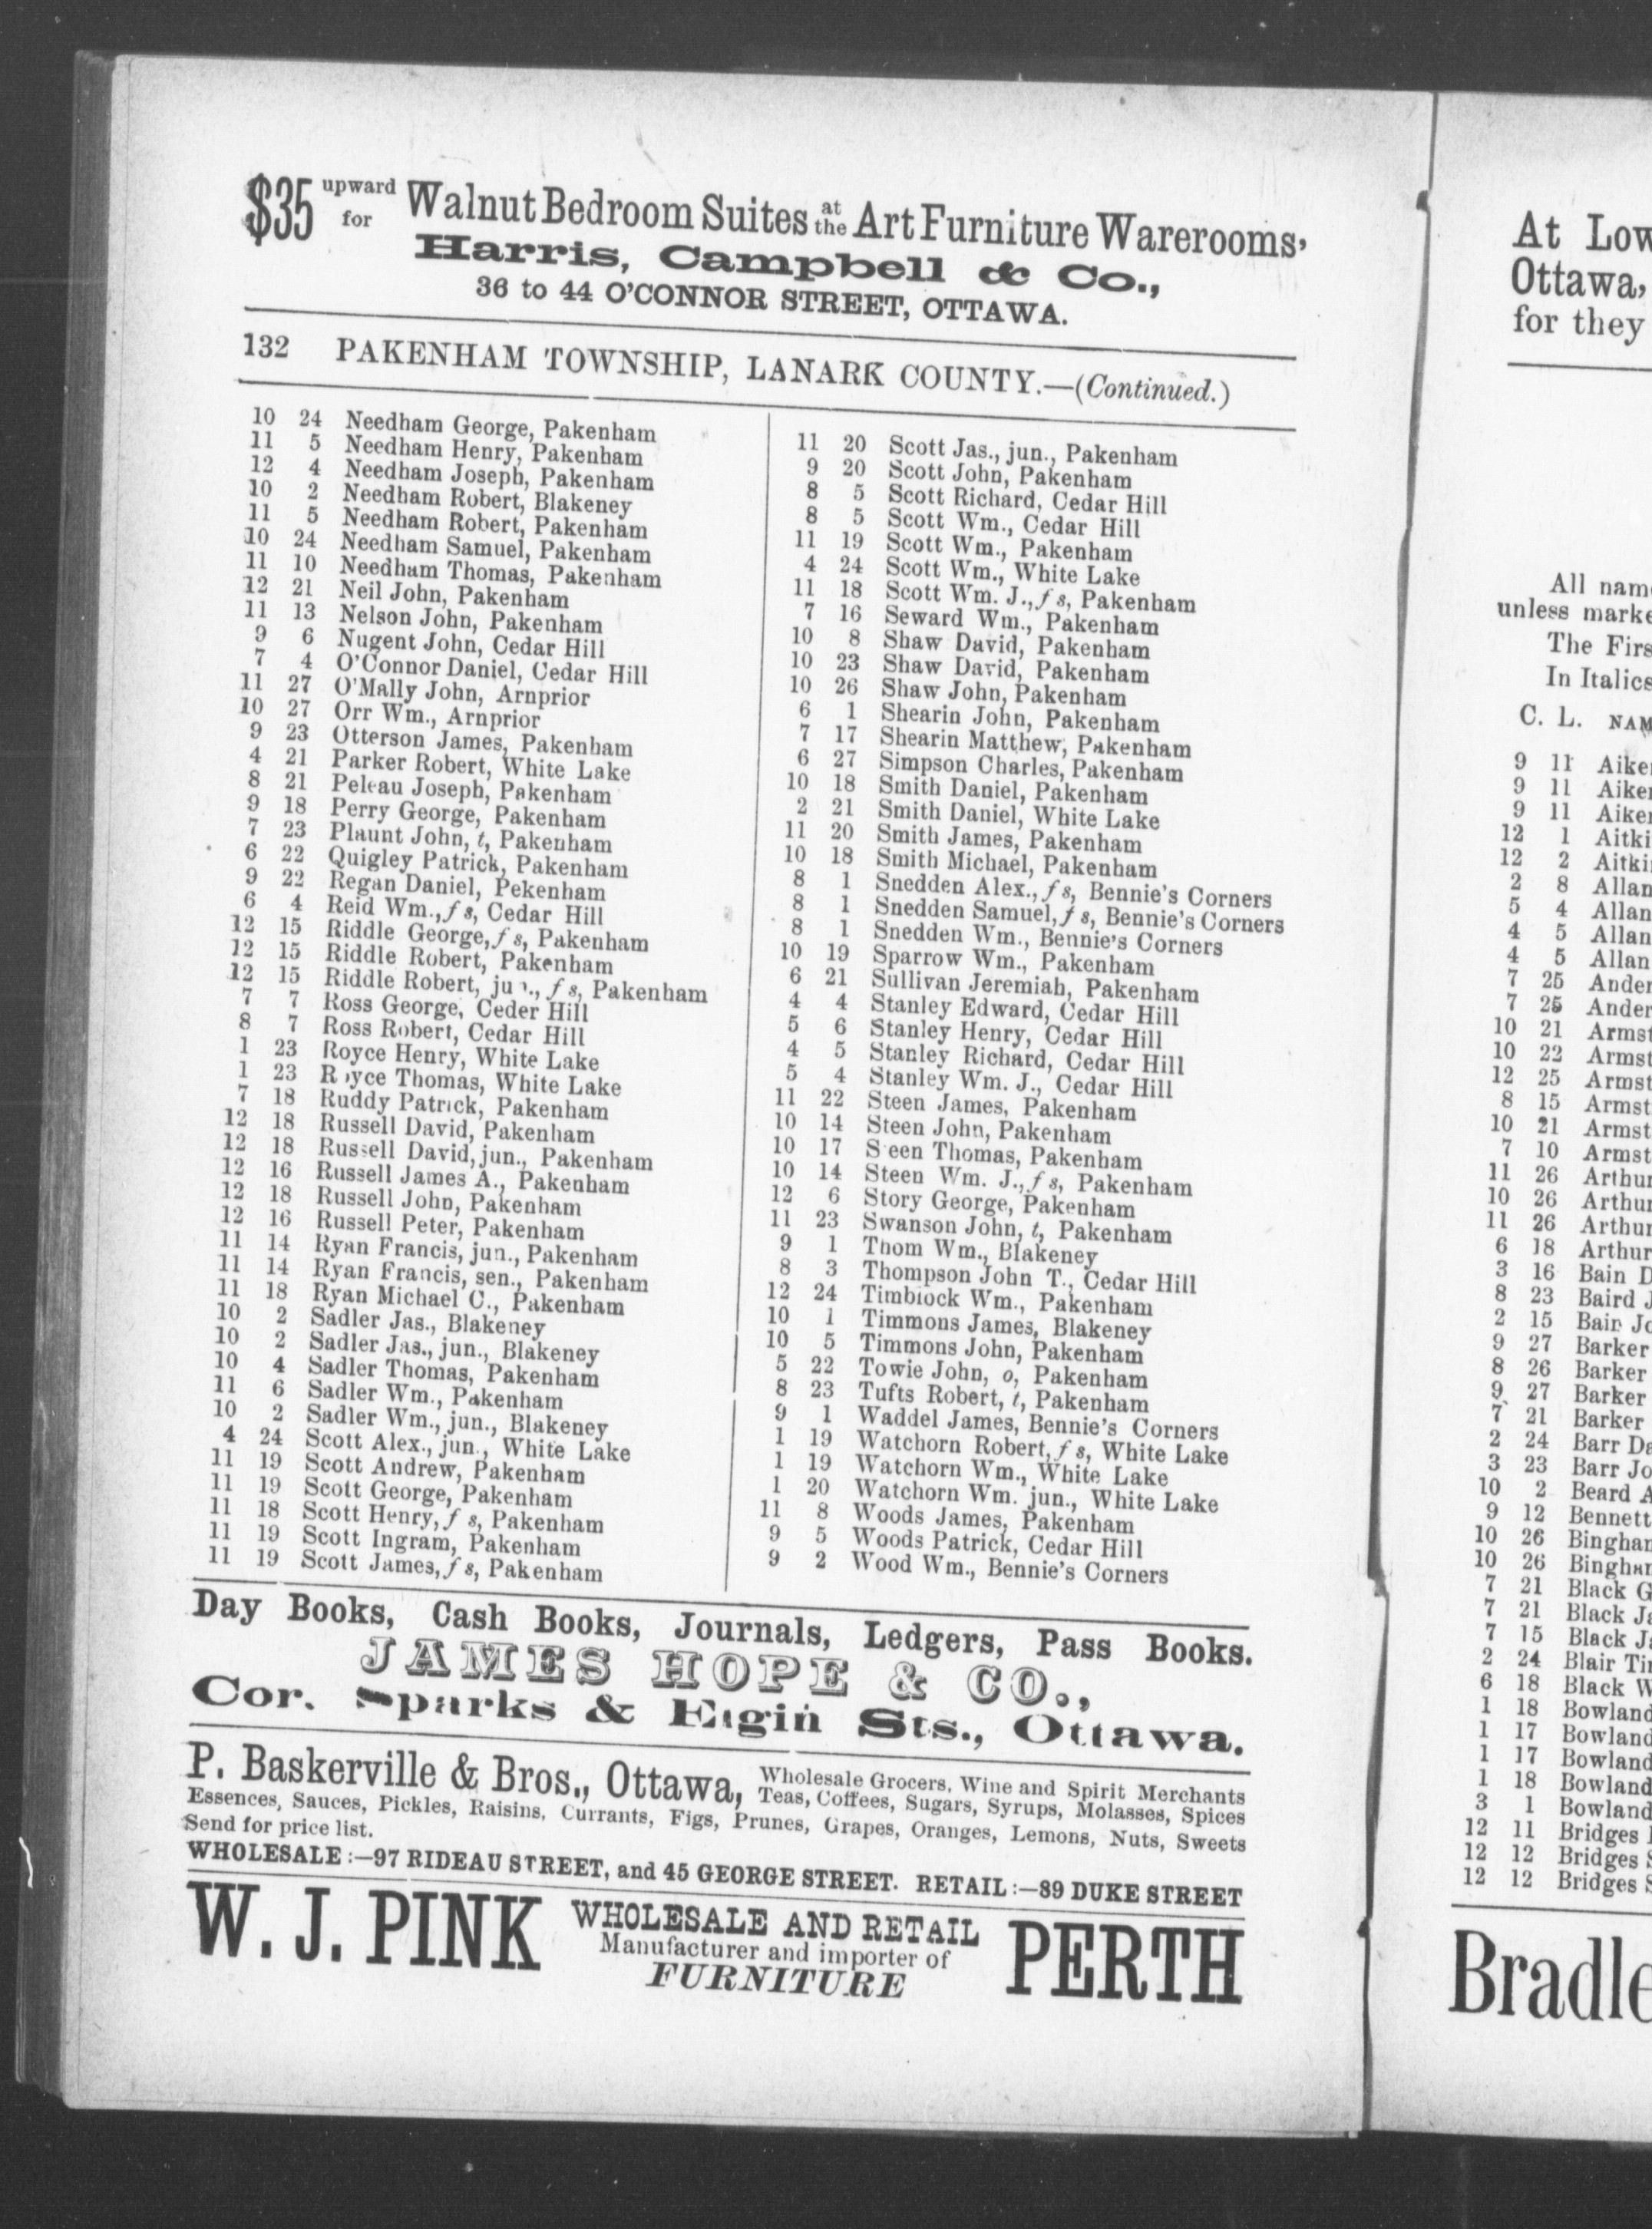 $35 upward for Walnut Bedroom Suites at the Art Furniture Warerooms,
Harris, Campbell & Co.,
36 to 44 O'CONNOR STREET, OTTAWA.
132 PAKENHAM TOWNSHIP, LANARK COUNTY.—(Continued.)
10 24 Needham George, Pakenham
11 5 Needham Henry, Pakenham
12 4 Needham Joseph, Pakenham
10 2 Needham Robert, Blakeney
11 5 Needham Robert, Pakenham
10 24 Needham Samuel, Pakenham
11 10 Needham Thomas, Pakenham
12 21 Neil John, Pakenham
11 13 Nelson John, Pakenham
9 6 Nugent John, Cedar Hill
7 4 O'Connor Daniel, Cedar Hill
11 27 O'Mally John, Arnprior
10 27 Orr Wm., Arnprior
9 23 Otterson James, Pakenham
4 21 Parker Robert, White Lake
8 21 Peleau Joseph, Pakenham
9 18 Perry George, Pakenham
7 23 Plaunt John, t, Pakenham
6 22 Quigley Patrick, Pakenham
9 22 Regan Daniel, Pekenham
6 4 Reid Wm., f s, Cedar Hill
12 15 Riddle George, f s, Pakenham
12 15 Riddle Robert, Pakenham
12 15 Riddle Robert, jun., f s, Pakenham
7 7 Ross George, Ceder Hill
8 7 Ross Robert, Cedar Hill
1 23 Royce Henry, White Lake
1 23 Royce Thomas, White Lake
7 18 Ruddy Patrick, Pakenham
12 18 Russell David, Pakenham
12 18 Russell David, jun., Pakenham
12 16 Russell James A., Pakenham
12 18 Russell John, Pakenham
12 16 Russell Peter, Pakenham
11 14 Ryan Francis, jun., Pakenham
11 14 Ryan Francis, sen., Pakenham
11 18 Ryan Michael C., Pakenham
10 2 Sadler Jas., Blakeney
10 2 Sadler Jas., jun., Blakeney
10 4 Sadler Thomas, Pakenham
11 6 Sadler Wm., Pakenham
10 2 Sadler Wm., jun., Blakeney
4 24 Scott Alex., jun., White Lake
11 19 Scott Andrew, Pakenham
11 19 Scott George, Pakenham
11 18 Scott Henry, f s, Pakenham
11 19 Scott Ingram, Pakenham
11 19 Scott James, f s, Pakenham
11 20 Scott Jas., jun., Pakenham
9 20 Scott John, Pakenham
8 5 Scott Richard, Cedar Hill
8 5 Scott Wm., Cedar Hill
11 19 Scott Wm., Pakenham
4 24 Scott Wm., White Lake
11 18 Scott Wm. J., f s, Pakenham
7 16 Seward Wm., Pakenham
10 8 Shaw David, Pakenham
10 23 Shaw David, Pakenham
10 26 Shaw John, Pakenham
6 1 Shearin John, Pakenham
7 17 Shearin Matthew, Pakenham
6 27 Simpson Charles, Pakenham
10 18 Smith Daniel, Pakenham
2 21 Smith Daniel, White Lake
11 20 Smith James, Pakenham
10 18 Smith Michael, Pakenham
8 1 Snedden Alex., f s, Bennie's Corners
8 1 Snedden Samuel, f s, Bennie's Corners
8 1 Snedden Wm., Bennie's Corners
10 19 Sparrow Wm., Pakenham
6 21 Sullivan Jeremiah, Pakenham
4 4 Stanley Edward, Cedar Hill
5 6 Stanley Henry, Cedar Hill
4 5 Stanley Richard, Cedar Hill
5 4 Stanley Wm. J., Cedar Hill
11 22 Steen James, Pakenham
10 14 Steen John, Pakenham
10 17 S een Thomas, Pakenham
10 14 Steen Wm. J., f s, Pakenham
12 6 Story George, Pakenham
11 23 Swanson John, t, Pakenham
9 1 Thom Wm., Blakeney
8 3 Thompson John T., Cedar Hill
12 24 Timblock Wm., Pakenham
10 1 Timmons James, Blakeney
10 5 Timmons John, Pakenham
5 22 Towie John, o, Pakenham
8 23 Tufts Robert, t, Pakenham
9 1 Waddel James, Bennie's Corners
1 19 Watchorn Robert, f s, White Lake
1 19 Watchorn Wm., White Lake
1 20 Watchorn Wm. jun., White Lake
11 8 Woods James, Pakenham
9 5 Woods Patrick, Cedar Hill
9 2 Wood Wm., Bennie's Corners
Day Books, Cash Books, Journals, Ledgers, Pass Books.
JAMES HOPE & CO.,
Cor. Sparks & Elgin Sts., Ottawa.
P. Baskerville & Bros., Ottawa, Wholesale Grocers, Wine and Spirit Merchants
Teas, Coffees, Sugars, Syrups, Molasses, Spices
Essences, Sauces, Pickles, Raisins, Currants, Figs, Prunes, Grapes, Oranges, Lemons, Nuts, Sweets
Send for price list.
WHOLESALE :—97 RIDEAU STREET, and 45 GEORGE STREET. RETAIL :—89 DUKE STREET
W. J. PINK WHOLESALE AND RETAIL
Manufacturer and importer of
FURNITURE
PERTH
At Low
Ottawa,
for they
All name
unless marke
The Firs
In Italics
C. L. NAM
9 11 Aiker
9 11 Aiker
9 11 Aiker
12 1 Aitki
12 2 Aitki
2 8 Allan
5 4 Allan
4 5 Allan
4 5 Allan
7 25 Ander
7 25 Ander
10 21 Armst
10 22 Armst
12 25 Armst
8 15 Armst
10 21 Armst
7 10 Armst
11 26 Arthur
10 26 Arthur
11 26 Arthur
6 18 Arthur
3 16 Bain D
8 23 Baird J
2 15 Bair Jo
9 27 Barker
8 26 Barker
9 27 Barker
7 21 Barker
2 24 Barr Da
3 23 Barr Jo
10 2 Beard A
9 12 Bennett
10 26 Bingham
10 26 Bingham
7 21 Black G
7 21 Black Ja
7 15 Black Ja
2 24 Blair Tim
6 18 Black W
1 18 Bowland
1 17 Bowland
1 17 Bowland
1 18 Bowland
3 1 Bowland
12 11 Bridges
12 12 Bridges S
12 12 Bridges S
Bradle